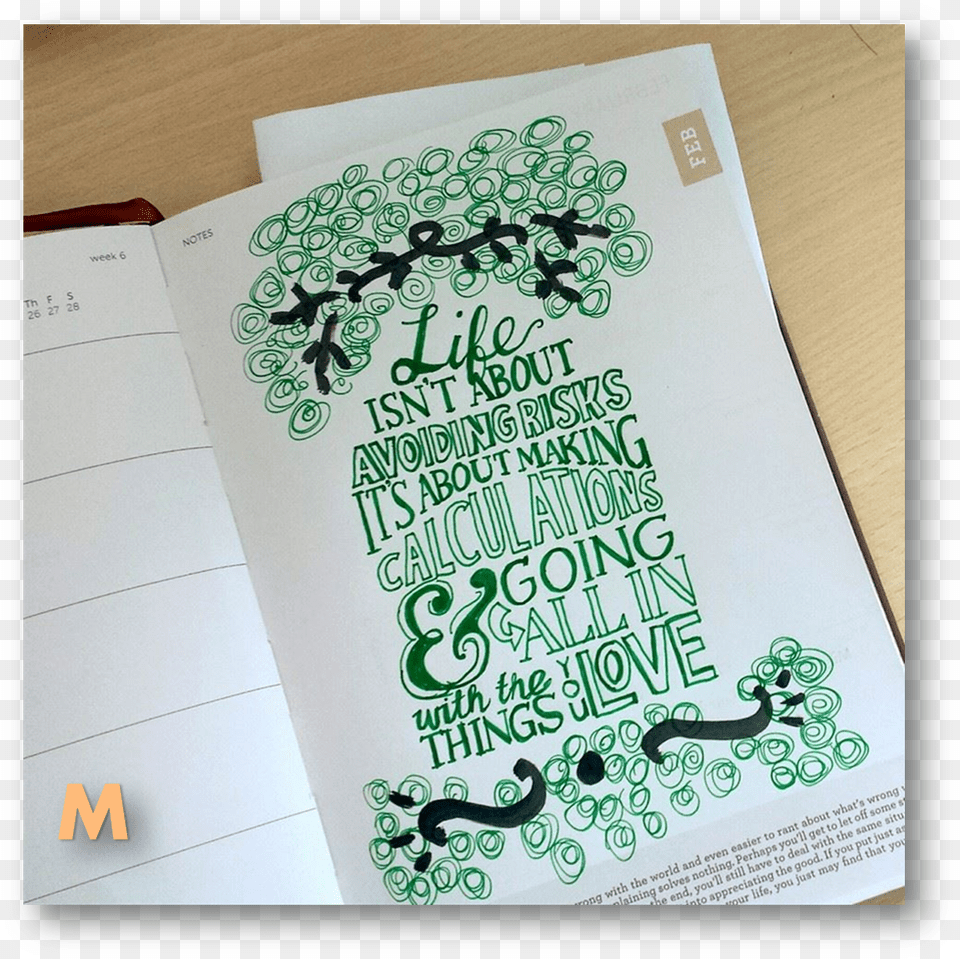 FEB
NOTES
week 6
Th F S
26 27 28
Life
ISN'T ABOUT
AVOIDING RISKS
IT'S ABOUT MAKING
CALCULATIONS
& GOING
ALL IN
with the
THINGS YOU LOVE
M
rong with the world and even easier to rant about what's wrong
plaining solves nothing. Perhaps you'll get to let off some
the end, you'll still have to deal with the same situ
into appreciating the good. If you put just as
your life, you just may find that you